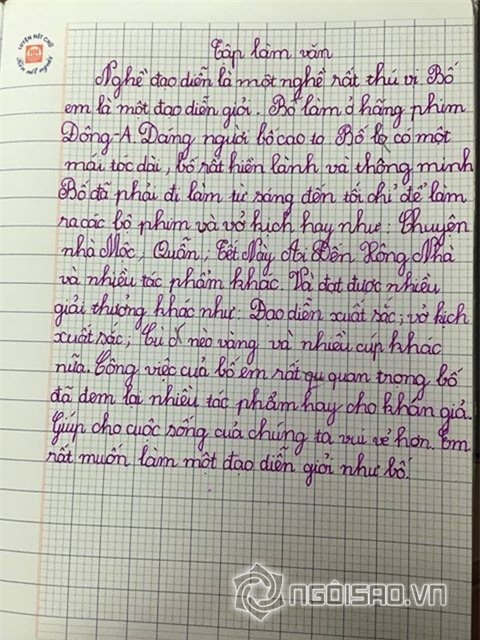 LUYỆN NÉT CHỮ
HH
Rèn nết người
Tập làm văn
Nghề đạo diễn là một nghề rất thú vi Bố
em là một đạo diễn giỏi. Bố làm ở hãng phim
Đông-A. Dáng người bố cao to Bố lạ có một
mái toc dài, bố rất hiền lành và thông minh
Bố đã phải đi làm từ sáng đến tối chỉ để làm
ra các bộ phim và vở kịch hay như: Chuyện
nhà Mộc, Quẫn, Tết Này Ai Đến Xông Nhà
và nhiều tác phẩm khác. Và đạt được nhiều
giải thưởng khác như: Đạo diễn xuất sắc; vở kịch
xuất sắc, Cù nèo vàng và nhiều cup khác
nữa. Công việc của bố em rất qu quan trọng bố
đã đem lại nhiều tác phẩm hay cho khán giả.
Giúp cho cuộc sống của chúng ta vui vẻ hơn. Em
rất muốn làm một đạo diễn giỏi như bố.
NGÔISAO.VN